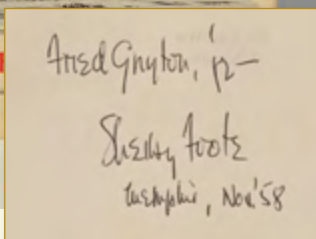 Fred Gnyton, Jr—
Shelby Foote
Memphis, Nov '58